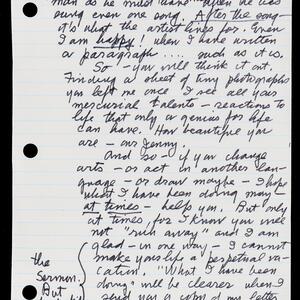 man as he must have after he has
sung even one song. After the song —
it's what the artist lives for. Even
I am happy when I have written
a paragraph .... such as it is.
So — you will think it out.
Finding a sheet of tiny photographs
you left me once I see all your
mercurial talents — reactions to
life that only a genius for life
can have. How beautiful you
are — our Jenny.
And so — if you change
arts — or act in another lan-
guage — or draw maybe — I hope
what I have been doing
at times — help you. But only
at times for I know you will
not "rush away" and I am
glad — in one way — I cannot
make your life a perpetual va-
cation. "What I have been
doing" will be clearer when I
send you a copy of my letter
the
Sermon.
But